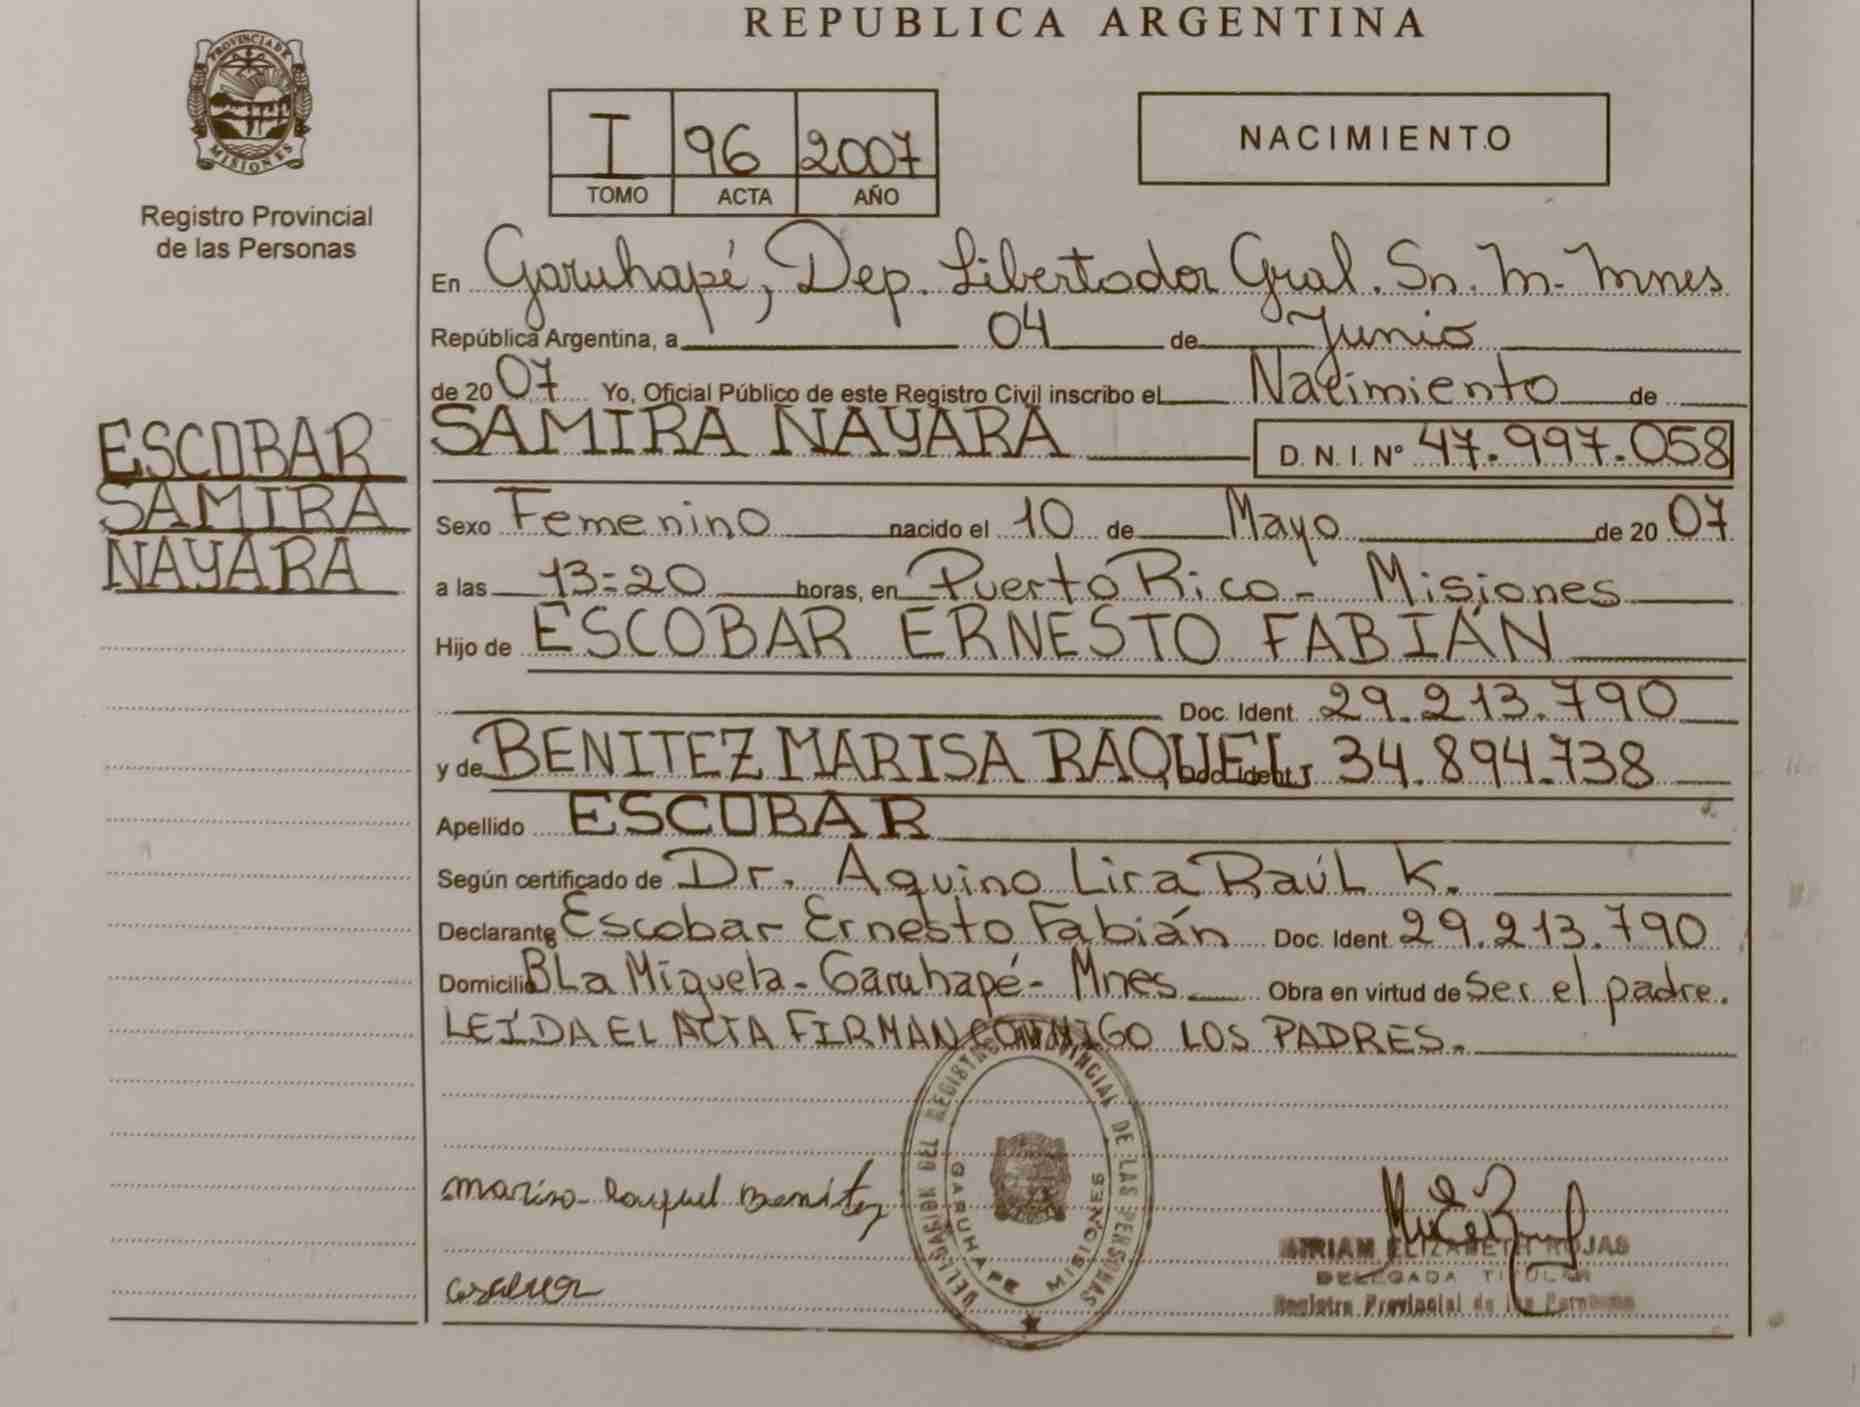 REPUBLICA ARGENTINA
PROVINCIA DE
MISIONES
Registro Provincial
de las Personas
I 96 2007
TOMO ACTA AÑO
NACIMIENTO
En Garuhapé, Dep. Libertador Gral. Sn. M. Mnes
República Argentina, a 04 de Junio
de 2007 Yo, Oficial Público de este Registro Civil inscribo el Nacimiento de
SAMIRA NAYARA D.N.I. Nº 47.997.058
ESCOBAR
SAMIRA
NAYARA
Sexo Femenino nacido el 10 de Mayo de 2007
a las 13:20 horas, en Puerto Rico - Misiones
Hijo de ESCOBAR ERNESTO FABIÁN
Doc. Ident. 29.213.790
y de BENITEZ MARISA RAQUEL Doc. Ident. 34.894.738
Apellido ESCOBAR
Según certificado de Dr. Aquino Lira Raúl K.
Declarante Escobar Ernesto Fabián Doc. Ident. 29.213.790
Domicilio B La Miguela - Garuhapé - Mnes Obra en virtud de Ser el padre.
LEÍDA EL ACTA FIRMAN CONMIGO LOS PADRES.
DELEGACION DEL REGISTRO PROVINCIAL DE LAS PERSONAS
GARUHAPE MISIONES
Marisa Raquel Benitez
MIRIAM ELIZABETH ROJAS
DELEGADA TITULAR
Registro Provincial de las Personas